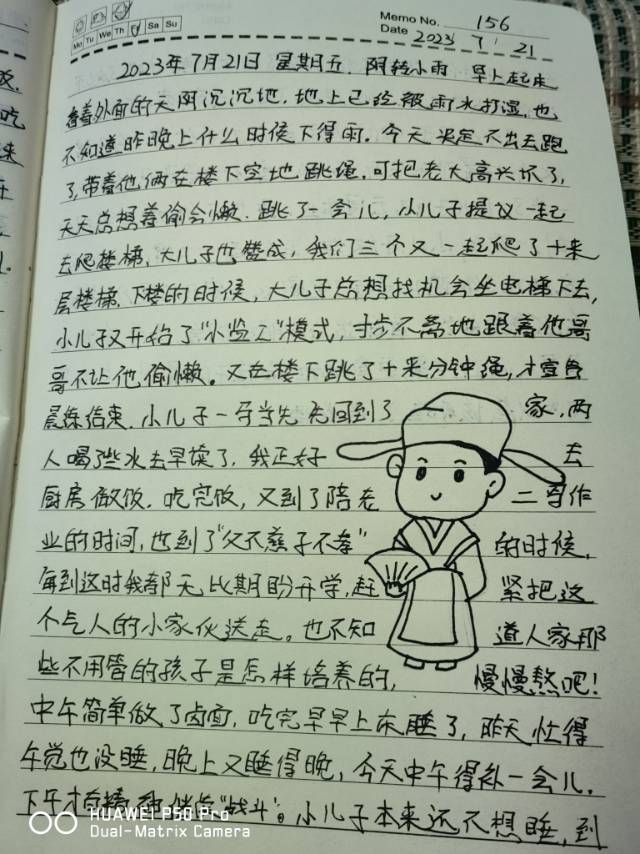 Mo Tu We Th Fr Sa Su
Memo No. 156
Date 2023 7 21
2023年7月21日 星期五 阴转小雨 早上起床
看着外面的天阴沉沉地，地上已经被雨水打湿，也
不知道昨晚上什么时候下得雨。今天决定不出去跑
了，带着他俩在楼下空地跳绳，可把老大高兴坏了，
天天总想着偷会懒。跳了一会儿，小儿子提议一起
去爬楼梯，大儿子也赞成，我们三个又一起爬了十来
层楼梯，下楼的时候，大儿子总想找机会坐电梯下去，
小儿子又开始了“小监工”模式，寸步不离地跟着他哥
哥不让他偷懒。又在楼下跳了十来分钟绳，才宣告
晨练结束。小儿子一马当先先回到了家，两
人喝了些水去早读了，我正好去
厨房做饭。吃完饭，又到了陪老二写作
业的时间，也到了“父不慈子不孝”的时候，
每到这时我都无比期盼开学，赶紧把这
个气人的小家伙送走。也不知道人家那
些不用管的孩子是怎样培养的，慢慢熬吧！
中午简单做了卤面，吃完早早上床睡了，昨天忙得
午觉也没睡，晚上又睡得晚，今天中午得补一会儿。
下午才有精神继续“战斗”。小儿子本来还不想睡，到
HUAWEI P50 Pro
Dual-Matrix Camera